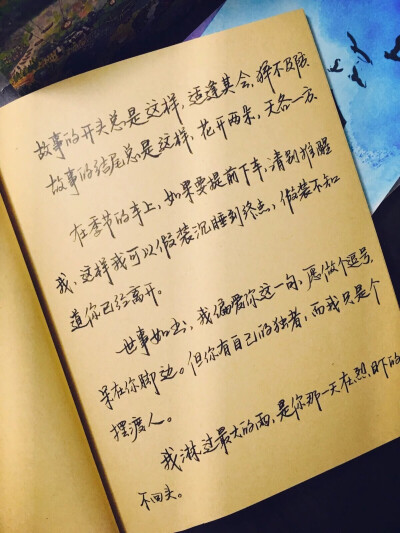 故事的开头总是这样,适逢其会,猝不及防
故事的结尾总是这样,花开两朵,天各一方
在季节的车上,如果要提前下车,请别推醒
我,这样我可以假装沉睡到终点,假装不知
道你已经离开。
世事如书,我偏爱你这一句,愿做个逗号,
呆在你脚边。但你有自己的独者,而我只是个
摆渡人。
我淋过最大的雨,是你那一天在烈日下的
不回头。